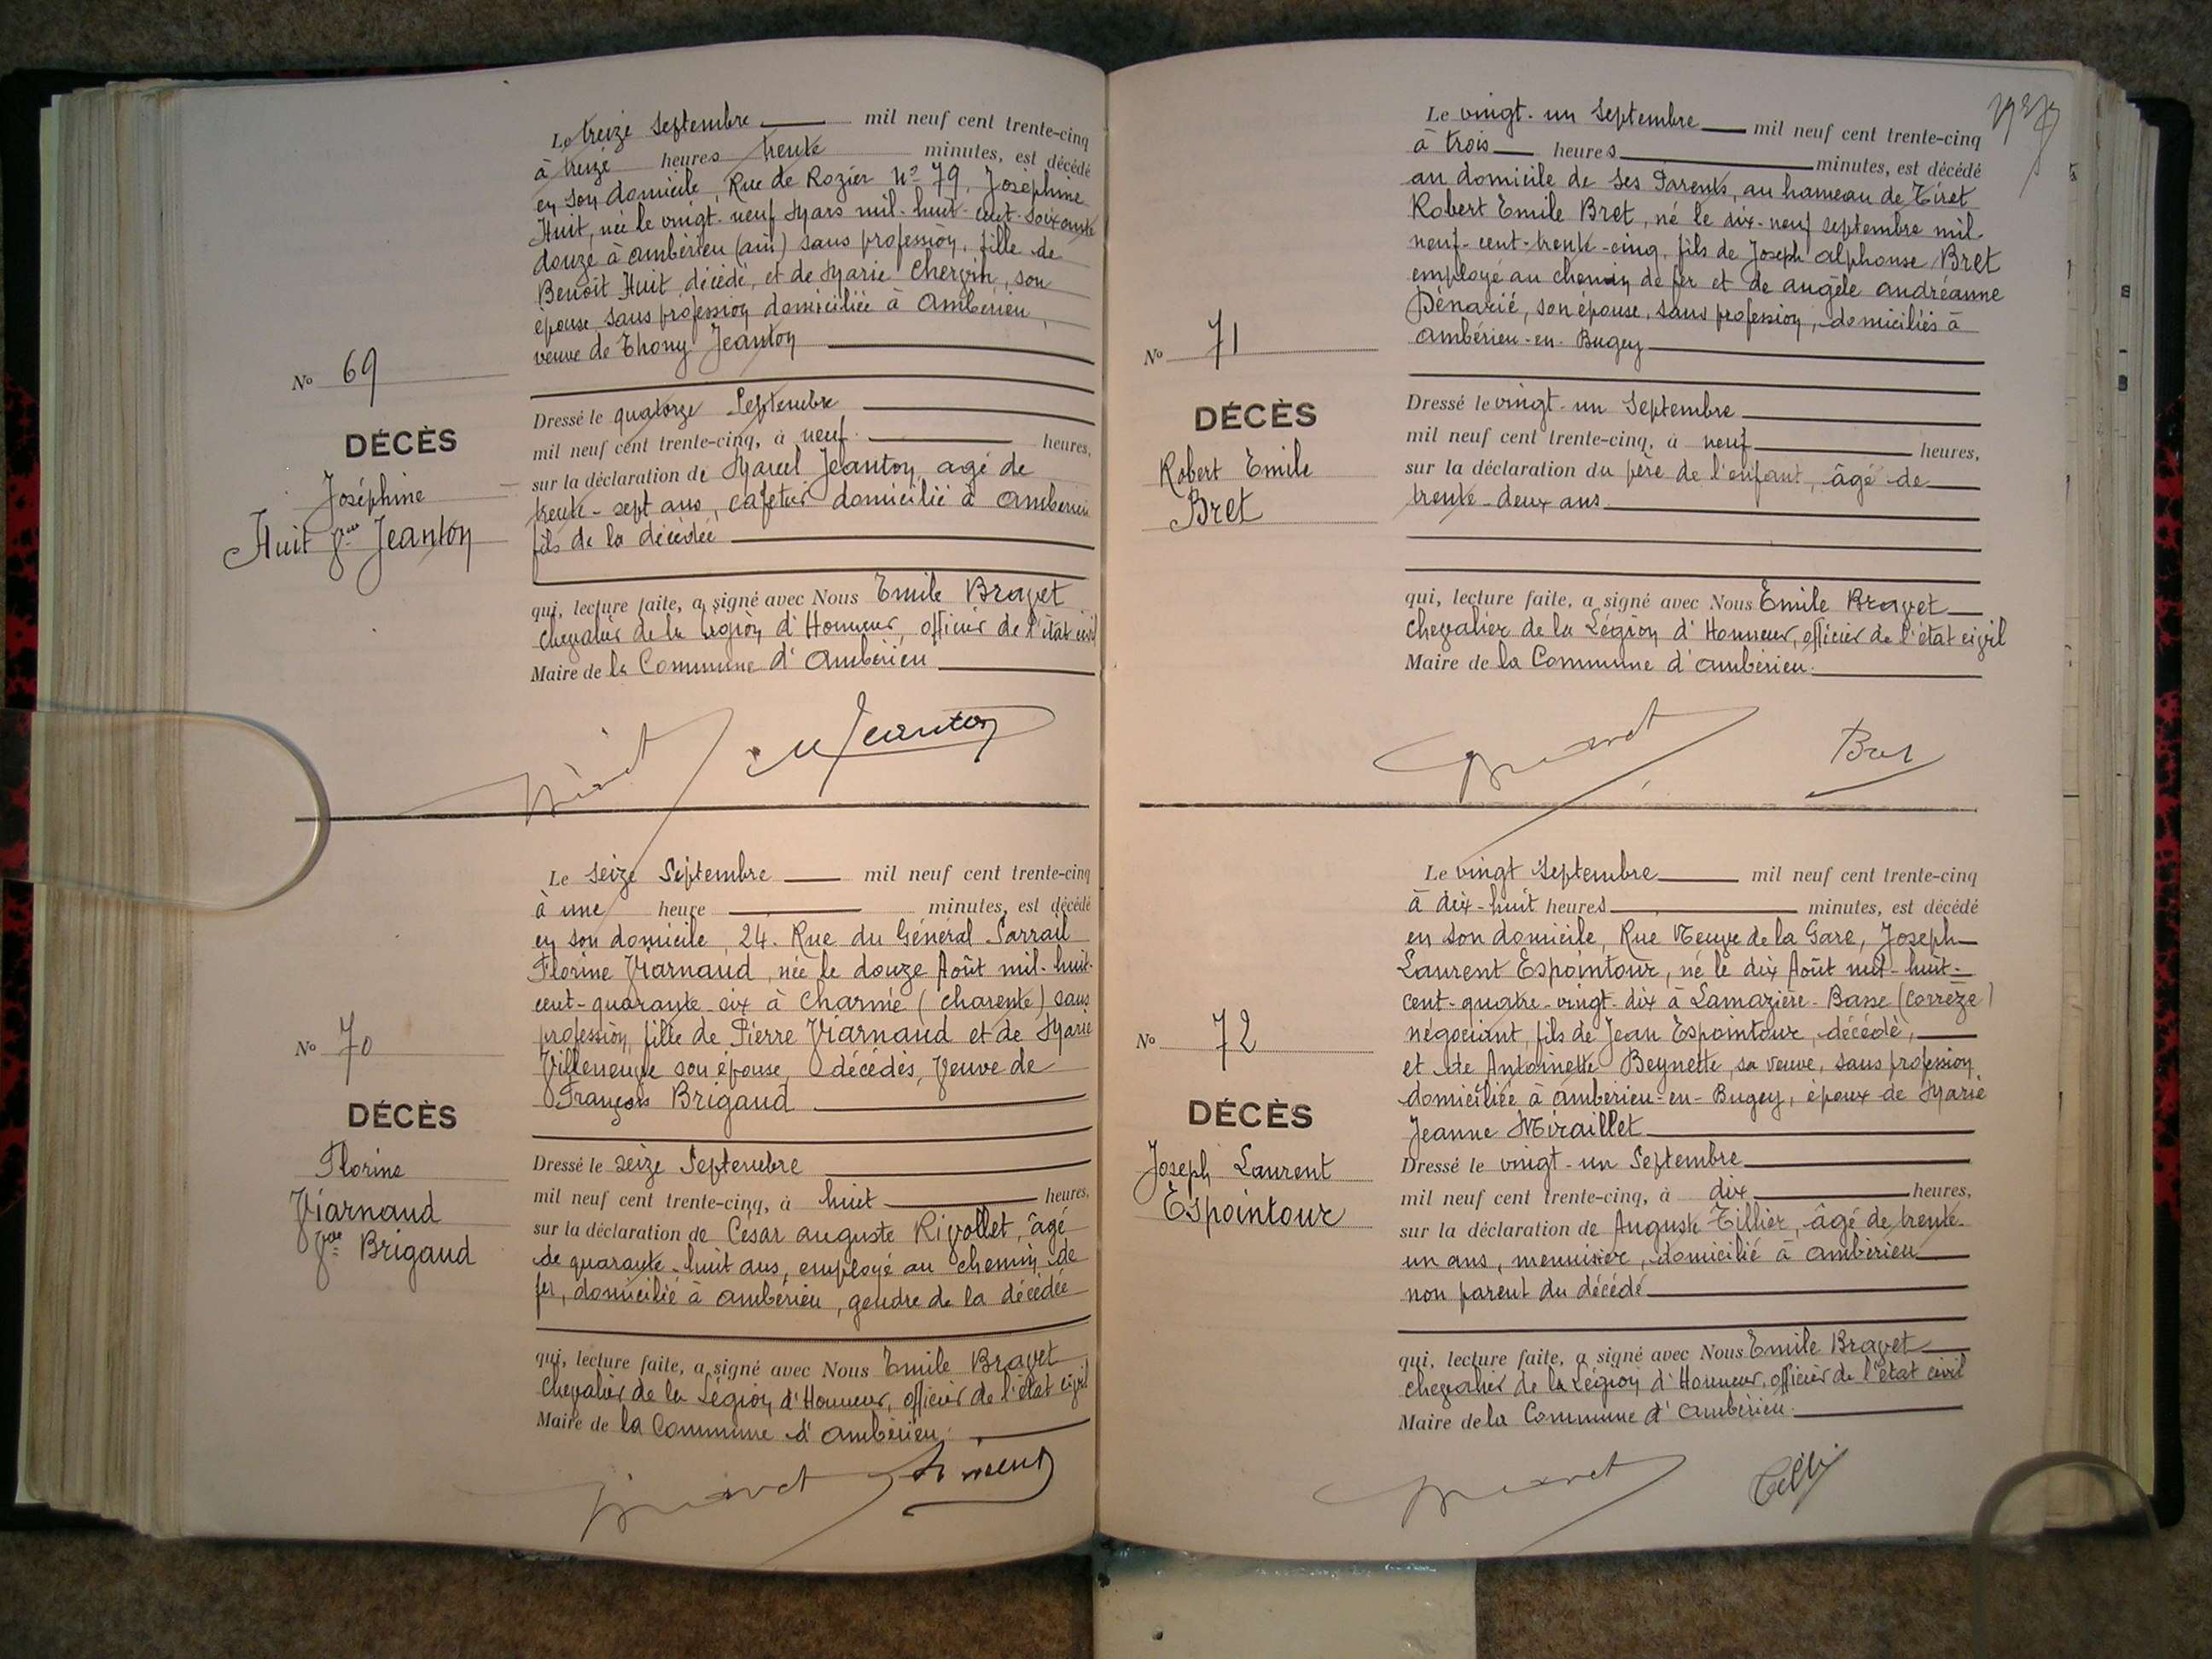 Le treize Septembre mil neuf cent trente-cinq
à treize heures trente minutes, est décédé
en son domicile, Rue de Rozier No 79, Joséphine
Huit, née le vingt-neuf Mars mil-huit-cent-soixante
douze à Ambérieu (ain) sans profession, fille de
Benoît Huit, décédé, et de Marie Chervin, son
épouse sans profession domiciliée à Ambérieu,
veuve de Thony Jeanton
No 69
DÉCÈS
Joséphine
Huit Vve Jeanton
Dressé le quatorze Septembre
mil neuf cent trente-cinq, à neuf heures,
sur la déclaration de Marcel Jeanton, agé de
trente-sept ans, cafetier domicilié à Ambérieu
fils de la décédée
qui, lecture faite, a signé avec Nous Emile Bravet
Chevalier de la Légion d'Honneur, officier de l'état civil
Maire de la Commune d'Ambérieu
Jeanton
Le seize Septembre mil neuf cent trente-cinq
à une heure minutes, est décédé
en son domicile, 24. Rue du Général Sarrail
Florine Viarnaud, née le douze Août mil-huit-
cent-quarante-six à Charmé (Charente) sans
profession, fille de Pierre Viarnaud et de Marie
Villeneuve son épouse, décédés, Veuve de
François Brigaud
No 70
DÉCÈS
Florine
Viarnaud
Vve Brigaud
Dressé le seize Septembre
mil neuf cent trente-cinq, à huit heures,
sur la déclaration de César Auguste Rivollet, âgé
de quarante-huit ans, employé au chemin de
fer, domicilié à Ambérieu, gendre de la décédée
qui, lecture faite, a signé avec Nous Emile Bravet
Chevalier de la Légion d'Honneur, officier de l'état civil
Maire de la Commune d'Ambérieu.
Le vingt-un Septembre mil neuf cent trente-cinq
à trois heures minutes, est décédé
au domicile de ses Parents, au hameau de Tiret
Robert Emile Bret, né le dix-neuf septembre mil-
neuf-cent-trente-cinq, fils de Joseph Alphonse Bret
employé au chemin de fer et de Angèle Andréanne
Dénarié, son épouse, sans profession, domiciliés à
Ambérieu-en-Bugey
No 71
DÉCÈS
Robert Emile
Bret
Dressé le vingt-un Septembre
mil neuf cent trente-cinq, à neuf heures,
sur la déclaration du père de l'enfant, âgé de
trente-deux ans
qui, lecture faite, a signé avec Nous Emile Bravet
Chevalier de la Légion d'Honneur, officier de l'état civil
Maire de la Commune d'Ambérieu.
Le vingt Septembre mil neuf cent trente-cinq
à dix-huit heures minutes, est décédé
en son domicile, Rue Neuve de la Gare, Joseph
Laurent Espointour, né le dix Août mil-huit-
cent-quatre-vingt-dix à Lamazière-Basse (Corrèze)
négociant, fils de Jean Espointour, décédé,
et de Antoinette Beynette, sa veuve, sans profession
domiciliée à Ambérieu-en-Bugey, époux de Marie
Jeanne Miraillet
No 72
DÉCÈS
Joseph Laurent
Espointour
Dressé le vingt-un Septembre
mil neuf cent trente-cinq, à dix heures,
sur la déclaration de Auguste Tillier, âgé de trente-
un ans, menuisier, domicilié à Ambérieu
non parent du décédé
qui, lecture faite, a signé avec Nous Emile Bravet
Chevalier de la Légion d'Honneur, officier de l'état civil
Maire de la Commune d'Ambérieu.